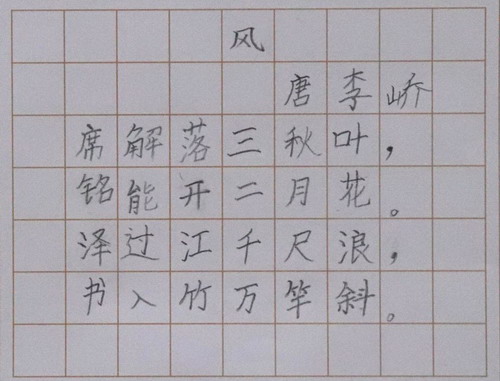 风
唐 李 峤
席解落三秋叶，
铭能开二月花。
泽过江千尺浪，
书入竹万竿斜。